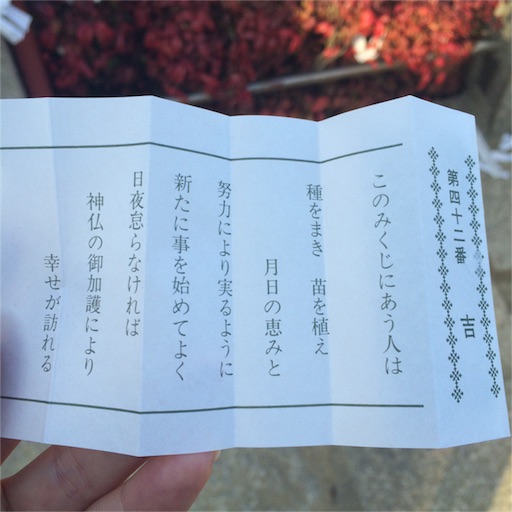 第四十二番
吉
このみくじにあう人は
種をまき 苗を植え
月日の恵みと
努力により実るように
新たに事を始めてよく
日夜怠らなければ
神仏の御加護により
幸せが訪れる